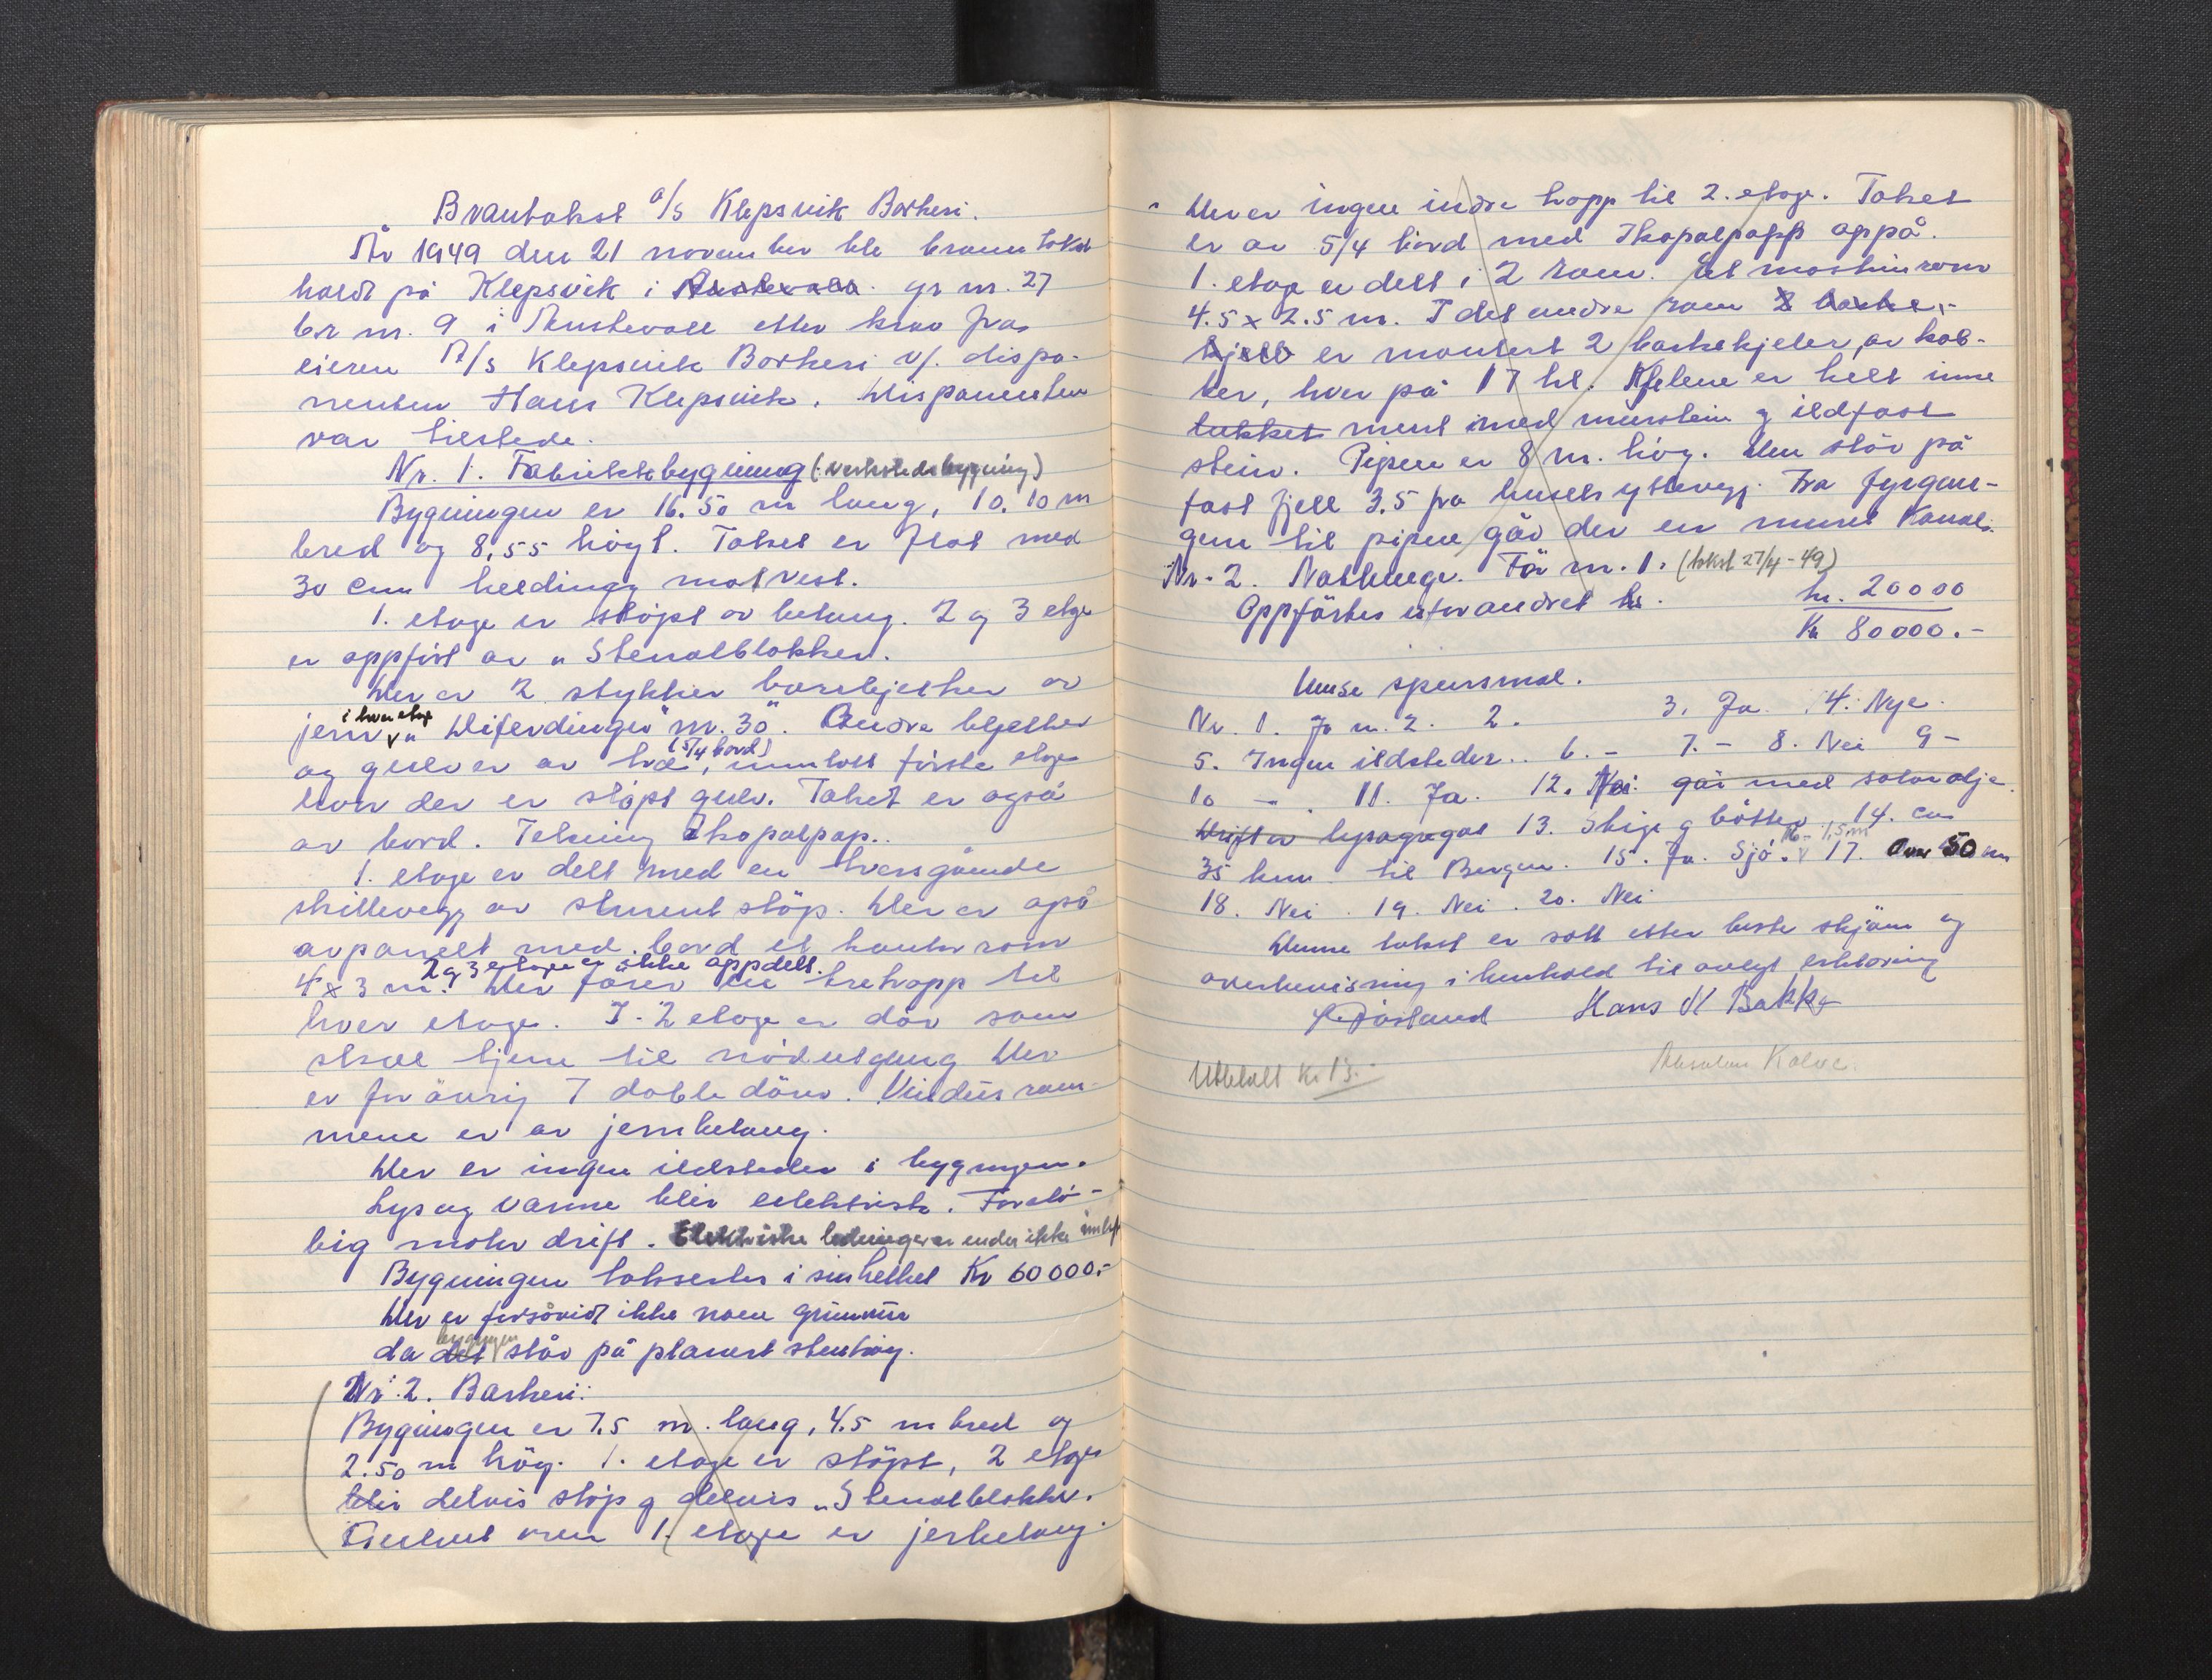 Branntakst a/s Klepsvik Barkeri.
År 1949 den 21 november ble branntakst
holdt på Klepsvik i Austevoll. gr nr. 27
br nr. 9 i Austevoll etter krav fra
eieren A/s Klepsvik Barkeri v/. dispo-
nenten Hans Klepsvik. Disponenten
var tilstede.
Nr. 1. Fabrikkbygning (: verkstedsbygning)
Bygningen er 16.50 m lang, 10.10 m
bred og 8.55 högt. Taket er flat med
30 cm helding mot vest.
1. etage er støpt av betong. 2 og 3 etage
er oppført av "Stenalblokker.
Der er 2 stykker bærebjelker av
jern i hver etage "Diferdinger" nr. 30". Andre bjelker
og gulv er av tre (5/4 bord), unntatt første etage
hvor der er støpt gulv. Taket er også
av bord. Tekning Ikopalpap..
1. etage er delt med en tversgående
skillevegg av sement støp. Der er også
avpanelt med bord et kontor rom
4 x 3 m. 2 og 3 etage er ikke oppdelt. Der fører en tretrapp til
hver etage. I 2 etage er dör som
skal tjene til nödutgang Der
er for övrig 7 doble dörer. Vindus ram-
mene er av jernbetong.
Der er ingen ildsteder i bygningen.
Lys og varme blir elektrisk. Forelö-
big motor drift. Elektriske ledninger er ender ikke innlagt
Bygningen takseres i sin helhet Kr 60 000.-
Der er forsåvidt ikke noen grunnmur
da det bygningen står på planert stentröng.
Nr. 2. Barkeri:
Bygningen er 7.5 m. lang, 4.5 m bred og
2.50 m höy. 1. etage er støpt, 2 etage
blir delvis støp og delvis "Stenalblokker.
oven 1. etage er jerbetong.
Der er ingen indre trapp til 2. etage. Taket
er av 5/4 bord med Ikopalpapp oppå.
1. etage er delt i 2 rom. Et maskinrom
4.5 x 2.5 m. I det andre rom 2 barke-
kjele er montert 2 barkekjeler, av kob-
ber, hver på 17 hl. Kjelene er helt inne
lukket murt med murstein og ildfast
stein. Pipen er 8 m. höy. Den står på
fast fjell 3.5 fra husets yttervegg. Fra fyrgan-
gene til pipen går der en muret Kanal.
Nr. 2. Nothenge. Før nr. 1. (takst 27/4-49)
Oppføres uforandret kr. kr. 20000
Kr 80000.-
Disse spørsmål.
Nr. 1. Jo nr. 2. 2. 3. Ja. 4. Nye.
5. Ingen ildsteder.. 6. - 7. - 8. Nei 9 -
10 -. 11. Ja. 12. Nei. går med solarolje.
Drift av lysagregat 13. Stige og bötter 14. ca
35 km. til Bergen. 15. Ja. Sjö. 16 - 1,5 m 17. Over 50 m
18. Nei. 19. Nei. 20. Nei
Denne takst er satt etter beste skjönn og
overbevisning i henhold til avlagt erklæring
Hans H Bakke
Utbetalt Kr 13.- Absalon Kalve.